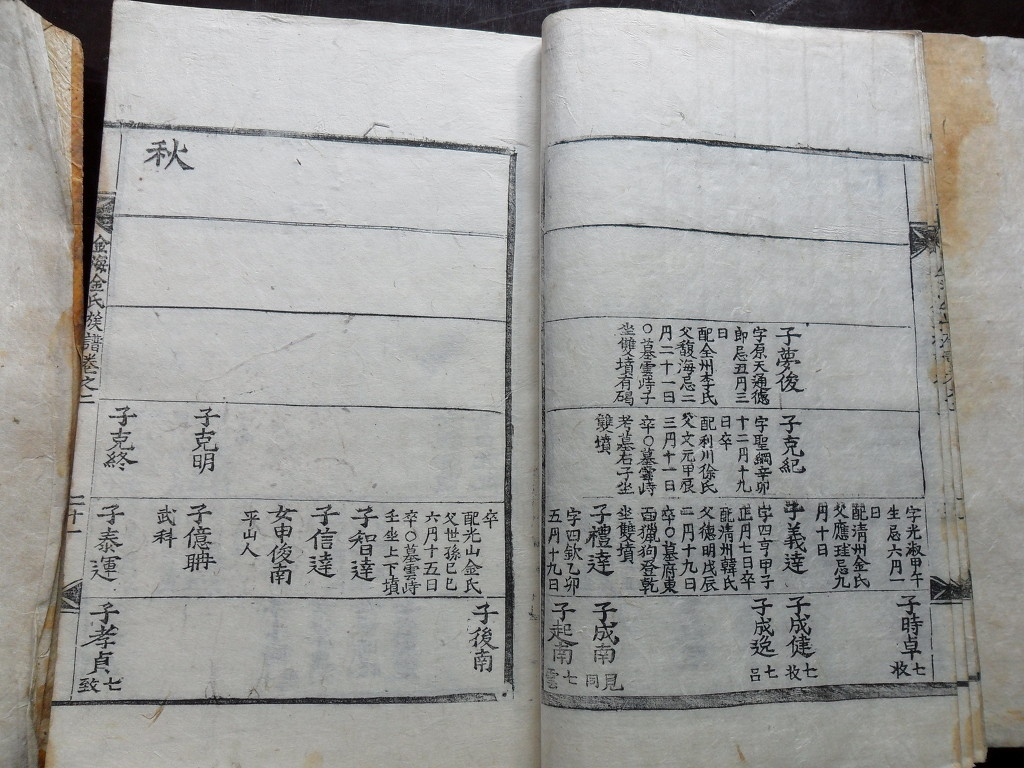 子夢後
字原天通德
郎忌丑月三
日
配全州李氏
父馥海忌二
月二十一日
〇墓雲峙子
坐雙墳有碣
子克紀
字聖綱辛卯
十二月十九
日卒
配利川徐氏
父文元甲辰
三月十一日
卒〇墓雲峙
考墓右子坐
雙墳
字光淑甲午
生忌六月一
日
配淸州金氏
父應珪忌九
月十日
子義達
字四亨甲子
正月七日卒
配淸州韓氏
父德明戊辰
二月十九日
卒〇墓府東
酉獵狗登乾
坐雙墳
子禮達
字四欽乙卯
五月十九日
子時卓 七牧
子成健 七牧
子成逸 七呂
子成南 見同
子起南 七雲
秋
子克明
子克終
卒
配光山金氏
父世孫己巳
六月十五日
卒〇墓雲峙
壬坐上下墳
子智達
子信達
女申俊南
平山人
子億聃
武科
子泰運
子後南
子孝貞 七致
金海金氏族譜卷之二
二十一